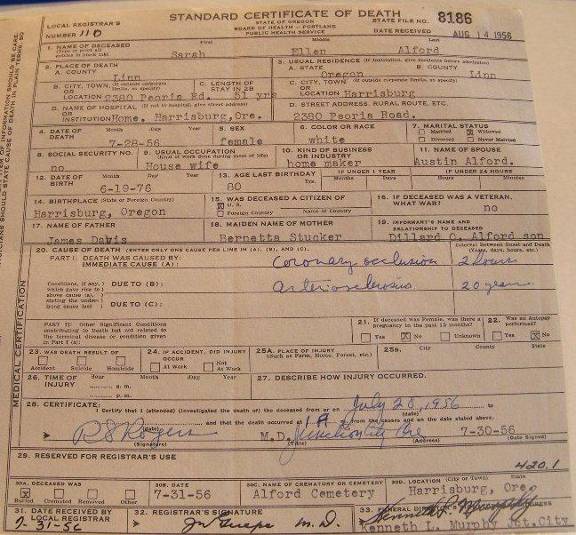 STANDARD CERTIFICATE OF DEATH
STATE OF OREGON
BOARD OF HEALTH — PORTLAND
PUBLIC HEALTH SERVICE
LOCAL REGISTRAR'S
NUMBER 110
STATE FILE NO. 8186
DATE RECEIVED AUG 14 1956
1. NAME OF DECEASED First Middle Last
Sarah Ellen Alford
2. PLACE OF DEATH
A. COUNTY
Linn
3. USUAL RESIDENCE
A. STATE B. COUNTY
Oregon Linn
B. CITY, TOWN, OR LOCATION
2380 Peoria Rd.
C. LENGTH OF STAY IN 2B
C. CITY, TOWN, OR LOCATION
Harrisburg
D. NAME OF HOSPITAL OR INSTITUTION
Home, Harrisburg, Ore.
D. STREET ADDRESS, RURAL ROUTE, ETC.
2380 Peoria Road.
4. DATE OF DEATH Month Day Year
7-28-56
5. SEX
female
6. COLOR OR RACE
white
7. MARITAL STATUS
Married Widowed
Divorced Never Married
8. SOCIAL SECURITY NO.
no
9. USUAL OCCUPATION
House wife
10. KIND OF BUSINESS OR INDUSTRY
home maker
11. NAME OF SPOUSE
Austin Alford.
12. DATE OF BIRTH Month Day Year
6-19-76
13. AGE LAST BIRTHDAY
80
IF UNDER 1 YEAR
Months Days
IF UNDER 24 HOURS
Hours Minutes
14. BIRTHPLACE (State or Foreign Country)
Harrisburg, Oregon
15. WAS DECEASED A CITIZEN OF
U.S.
Foreign Country Name of Country
16. IF DECEASED WAS A VETERAN, WHAT WAR?
no
17. NAME OF FATHER
James Davis
18. MAIDEN NAME OF MOTHER
Bernetta Stucker
19. INFORMANT'S NAME AND RELATIONSHIP TO DECEASED
Dillard C. Alford son
20. CAUSE OF DEATH (ENTER ONLY ONE CAUSE PER LINE IN (A), (B), AND (C).
PART I. DEATH WAS CAUSED BY:
IMMEDIATE CAUSE (A): Coronary occlusion 2 hours
DUE TO (B): arteriosclerosis 20 years
DUE TO (C):
PART II. Other Significant Conditions contributing to Death but not related to the terminal disease or condition given in Part I (A):
21. If deceased was Female, was there a pregnancy in the past 12 months?
Yes No Unknown
22. Was an Autopsy performed?
Yes No
23. WAS DEATH RESULT OF
Accident Suicide Homicide
24. IF ACCIDENT, DID INJURY OCCUR
At Work Not At Work
25A. PLACE OF INJURY (Such as Farm, Home, Forest, etc.)
25B. City County State
26. TIME OF INJURY Month Day Year
27. DESCRIBE HOW INJURY OCCURRED.
MEDICAL CERTIFICATION
28. CERTIFICATE:
I certify that I (attended) (investigated the death of) the deceased from or on July 28, 1956 to
and that the death occurred at 1A from the causes and on the date stated above.
R S Rogers M.D. Junction City Ore 7-30-56
(Signature) (Address) (Date Signed)
29. RESERVED FOR REGISTRAR'S USE
420.1
30A. DECEASED WAS
Buried Cremated Removed Other
30B. DATE
7-31-56
30C. NAME OF CREMATORY OR CEMETERY
Alford Cemetery
30D. LOCATION (City or Town) State
Harrisburg, Ore.
31. DATE RECEIVED BY LOCAL REGISTRAR
7-31-56
32. REGISTRAR'S SIGNATURE
M.D.
Kenneth L. Murphy Jct. City